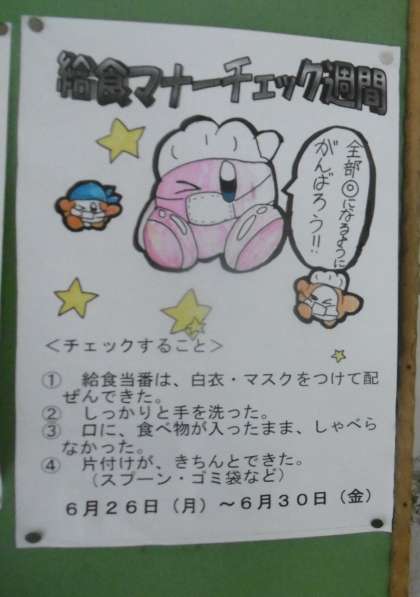 給食マナーチェック週間
全部◎になるように
がんばろう!!
<チェックすること>
① 給食当番は、白衣・マスクをつけて配
ぜんできた。
② しっかりと手を洗った。
③ 口に、食べ物が入ったまま、しゃべら
なかった。
④ 片付けが、きちんとできた。
(スプーン・ゴミ袋など)
6月26日(月)~6月30日(金)